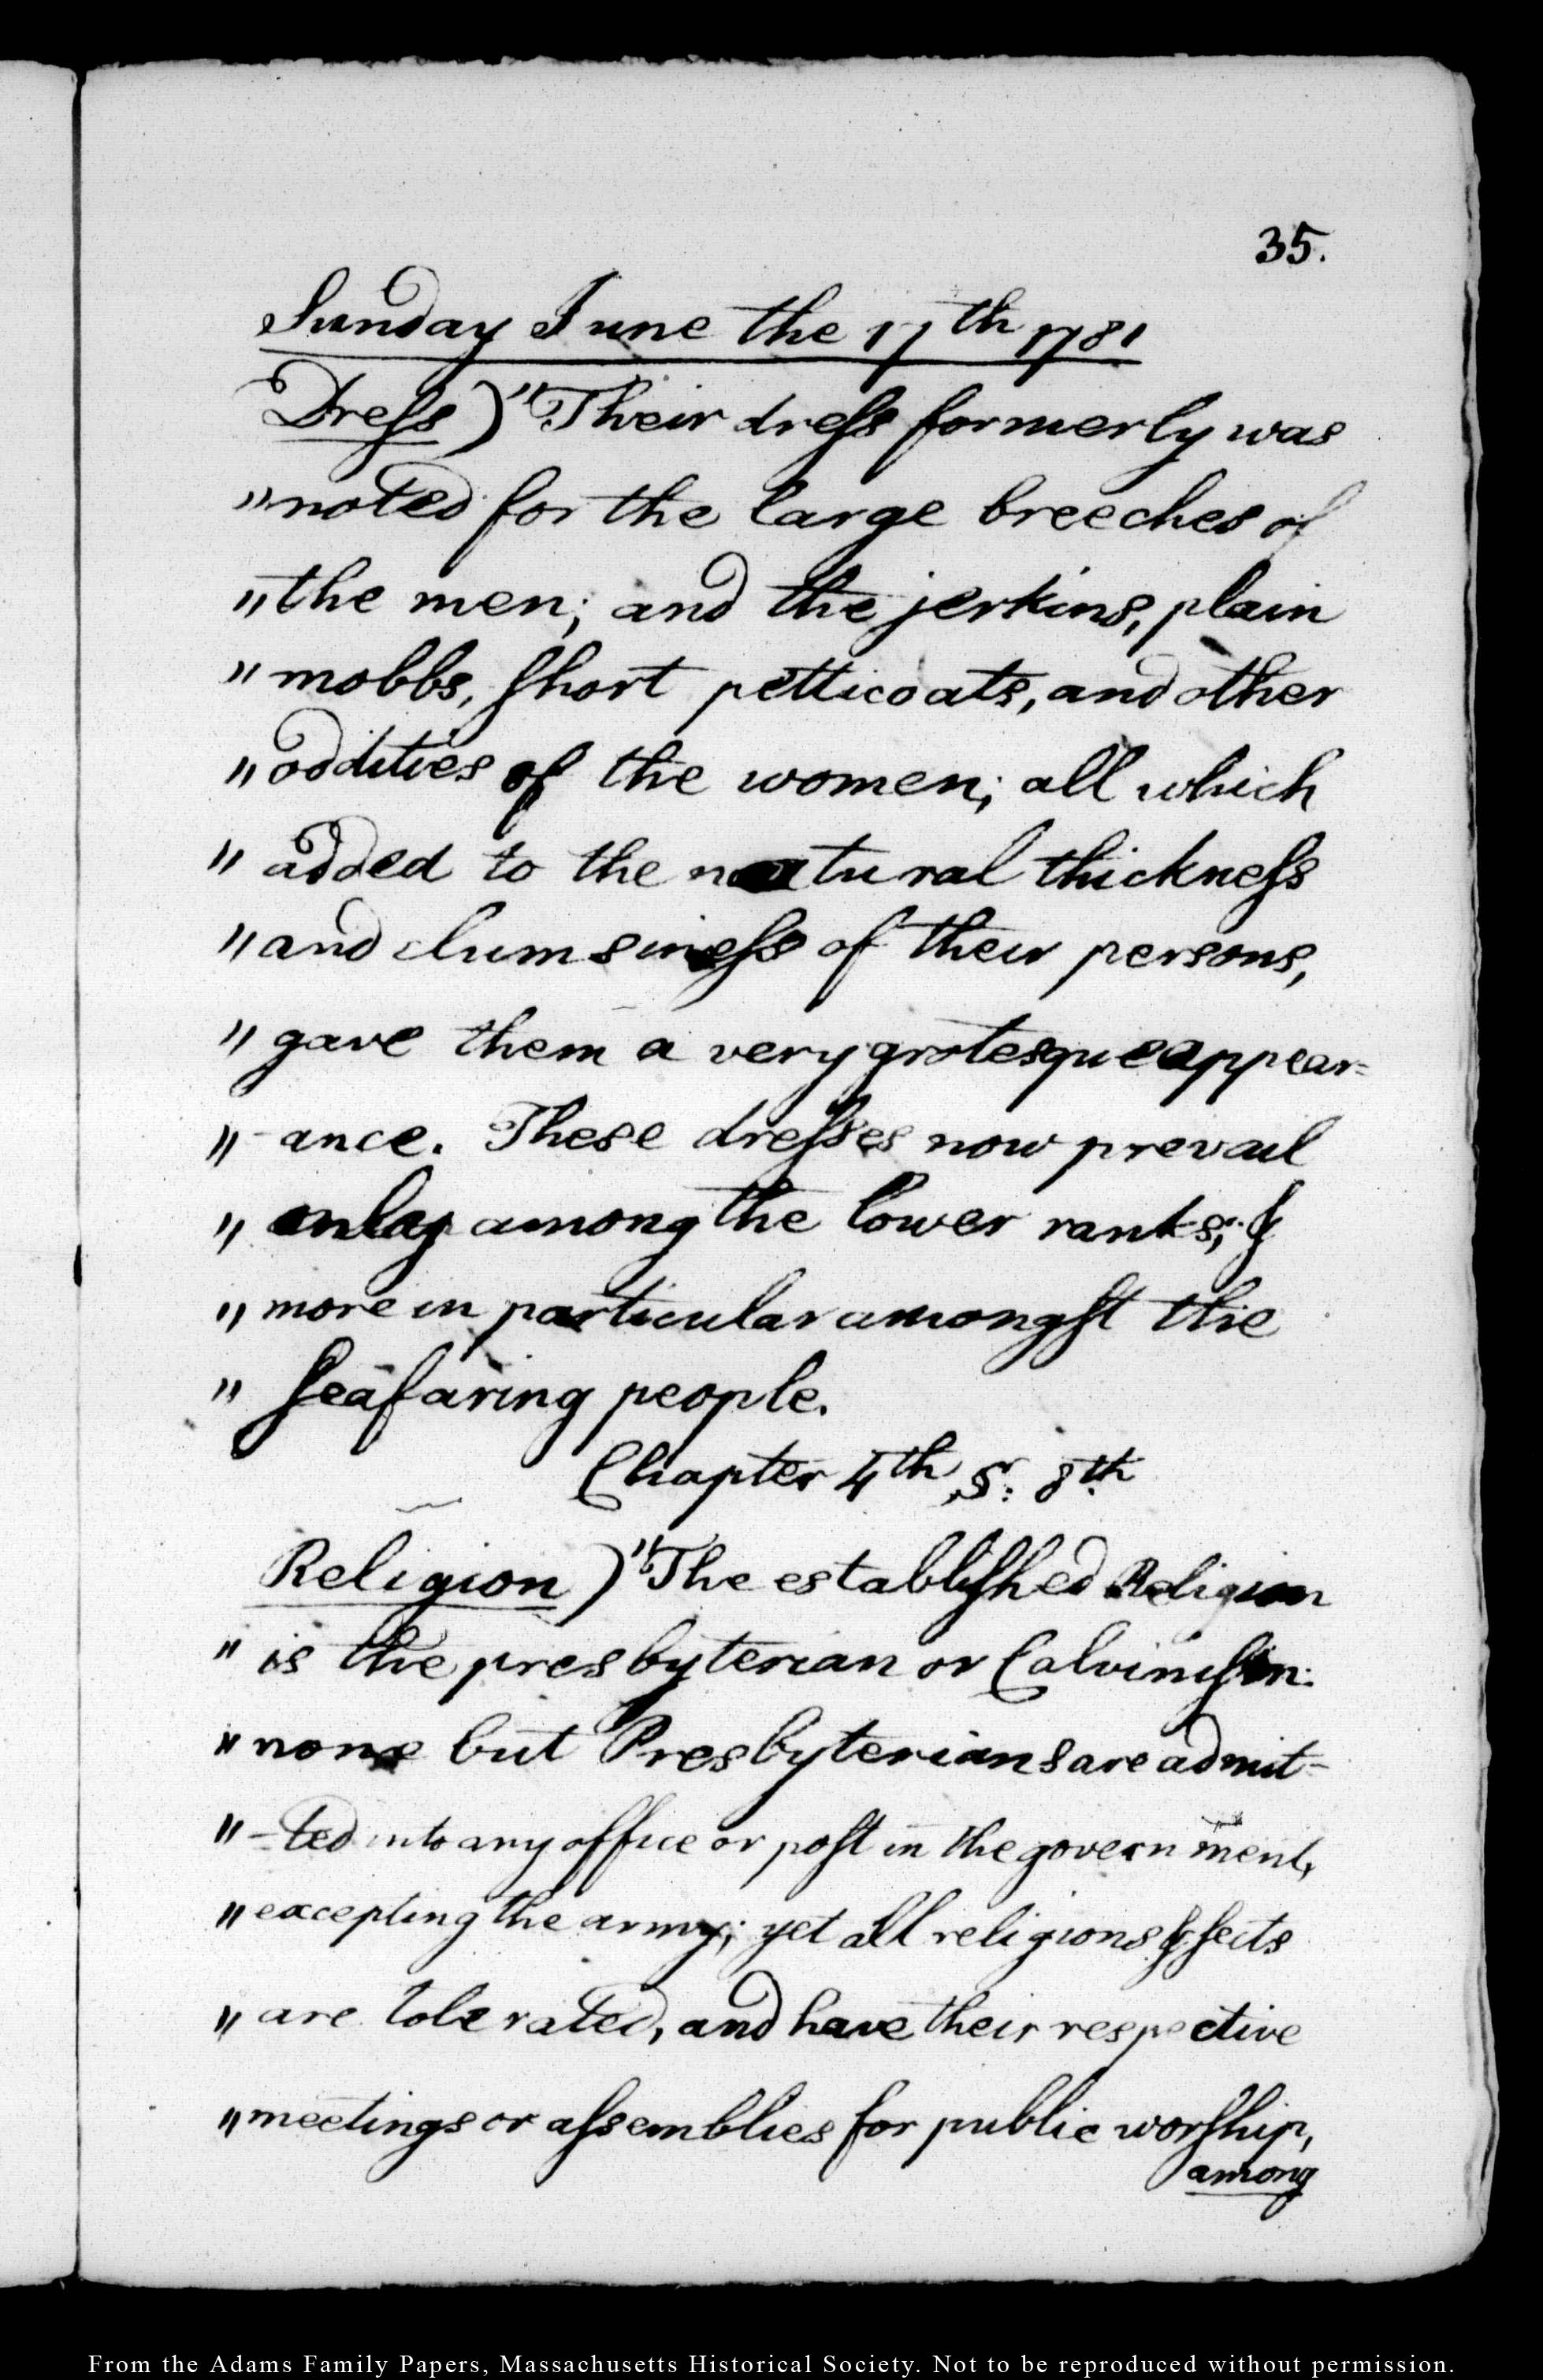 35.
Sunday June the 17th 1781
Dress) "Their dress formerly was
"noted for the large breeches of
"the men; and the jerkins, plain
"mobbs, short petticoats, and other
"oddities of the women; all which
"added to the natural thickness
"and clumsiness of their persons,
"gave them a very grotesque appear=
"-ance. These dresses now prevail
"only among the lower ranks; &
"more in particular amongst the
"seafaring people.
Chapter 4th S: 8th
Religion) "The established Religion
"is the presbyterian or Calvinism:
"none but Presbyterians are admit-
"-ted into any office or post in the government,
"excepting the army; yet all religions & sects
"are tolerated, and have their respective
"meetings or assemblies for public worship,
among
From the Adams Family Papers, Massachusetts Historical Society. Not to be reproduced without permission.